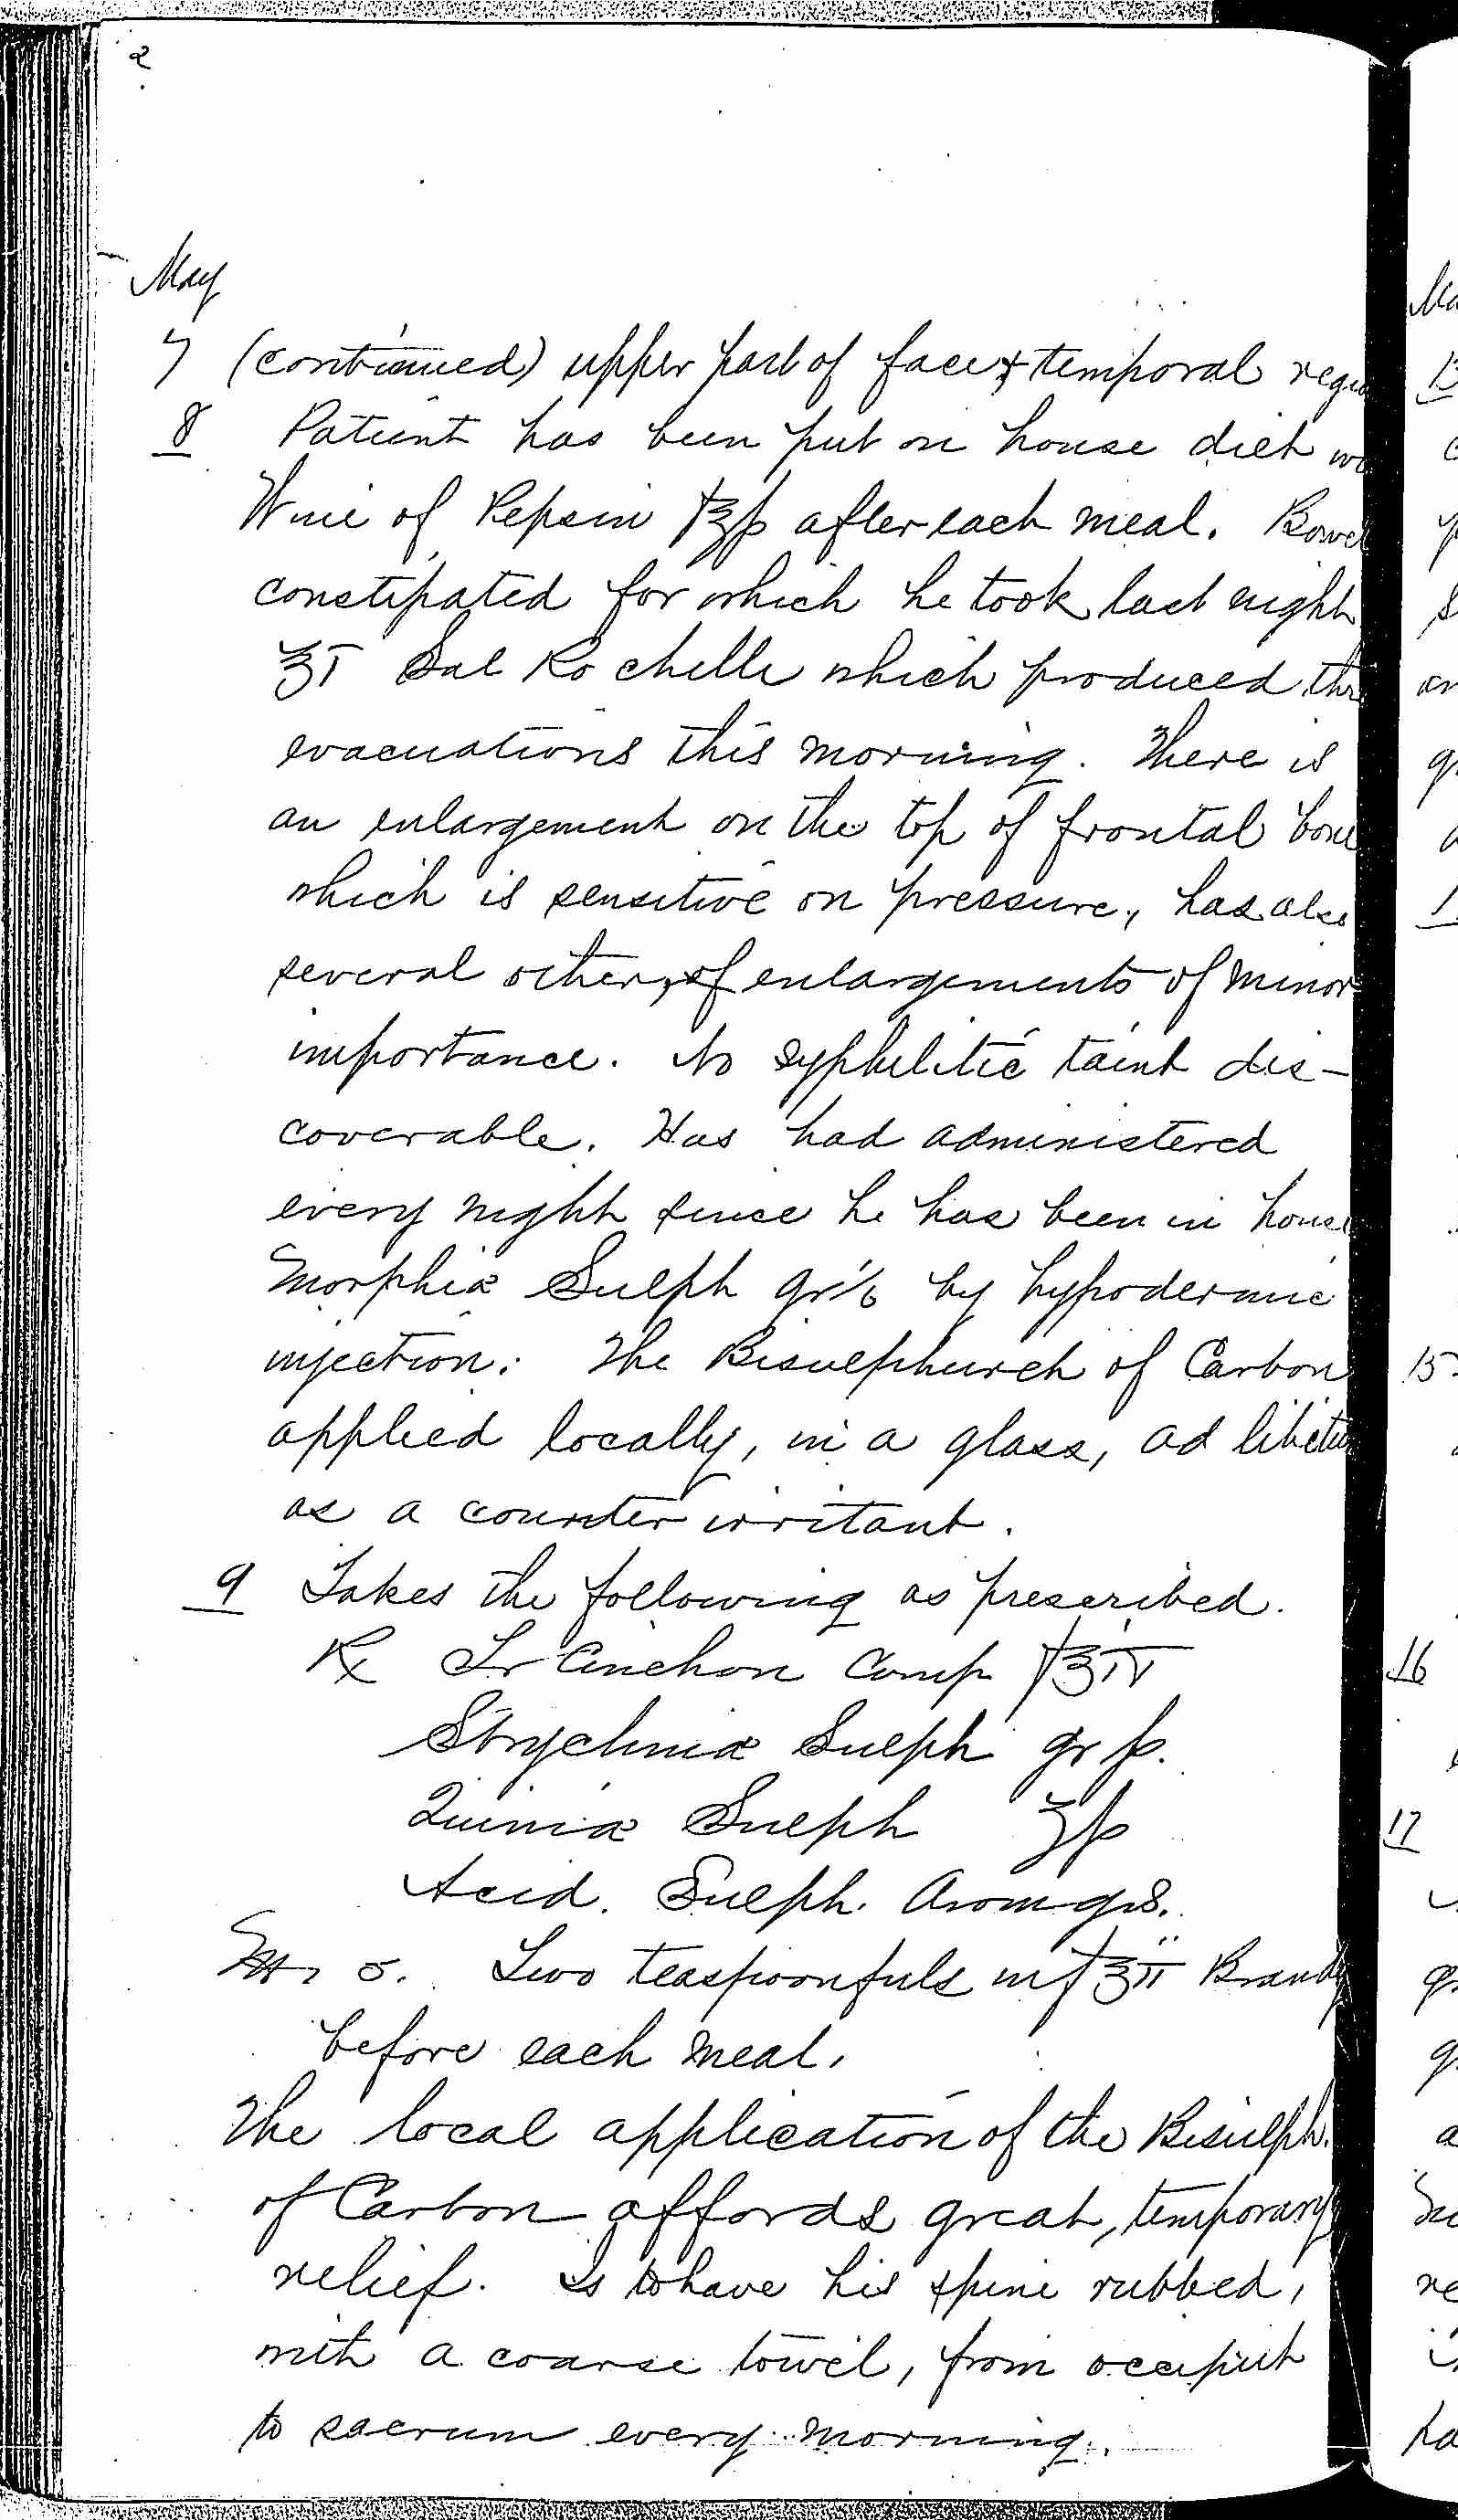 2
May
7 (continued) upper part of face & temporal regio
8 Patient has been put on house diet
Wine of Pepsin f℥ß after each meal. Bowel
constipated for which he took last night
℥i Sal Rochelle which produced thre
evacuations this morning. There is
an enlargement on the top of frontal bone
which is sensitive on pressure, has also
several other, of enlargements of minor
importance. No syphilitic taint dis-
coverable. Has had administered
every night since he has been in house
Morphiæ Sulph gr 1/6 by hypodermic
injection. The Bisulphuret of Carbon
applied locally, in a glass, ad libitum
as a counter irritant.
9 Takes the following as prescribed.
℞ Tr Cinchon Comp f℥iv
Strychniæ Sulph gr ß.
Quiniæ Sulph ʒß
Acid. Sulph. Arom q.s.
M. S. Two teaspoonfuls in f℥ii Brandy
before each meal.
The local application of the Bisulph.
of Carbon affords great, temporary
relief. Is to have his spine rubbed,
with a coarse towel, from occiput
to sacrum every morning.
Ma
13
15
16
17